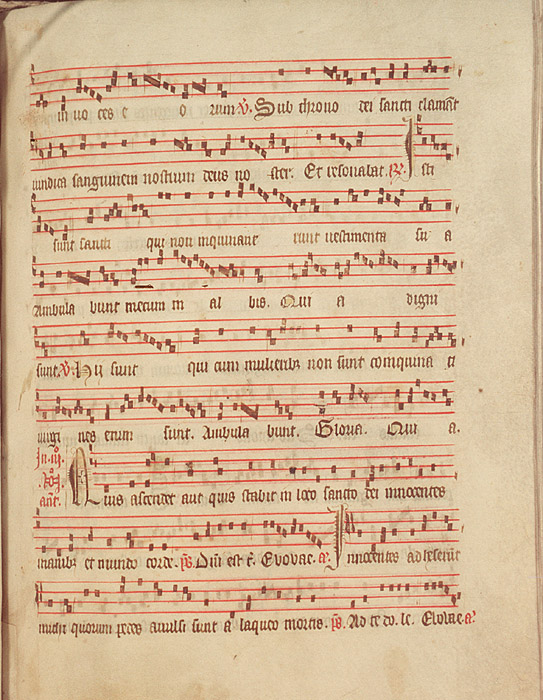 in uo ces e o rum V. Sub throno dei sancti clamant
uindica sanguinem nostrum deus no ster. Et resonabat. R. Isti
sunt sancti qui non inquinaue runt uestimenta su a
Ambula bunt mecum in al bis. Qui a digni
sunt. V. Hij sunt qui cum mulieribz non sunt coinquina ti
uirgi nes enim sunt. Ambula bunt. Gloria. Qui a.
In .iij. No. Añt. Quis ascendet aut quis stabit in loco sancto dei innocentes
manibz et mundo corde. ps. Dñi est t. Evovae. a. Innocentes adheserūt
michi quorum pedes auulsi sunt a laqueo mortis. ps. Ad te do. le. Evovae. a.